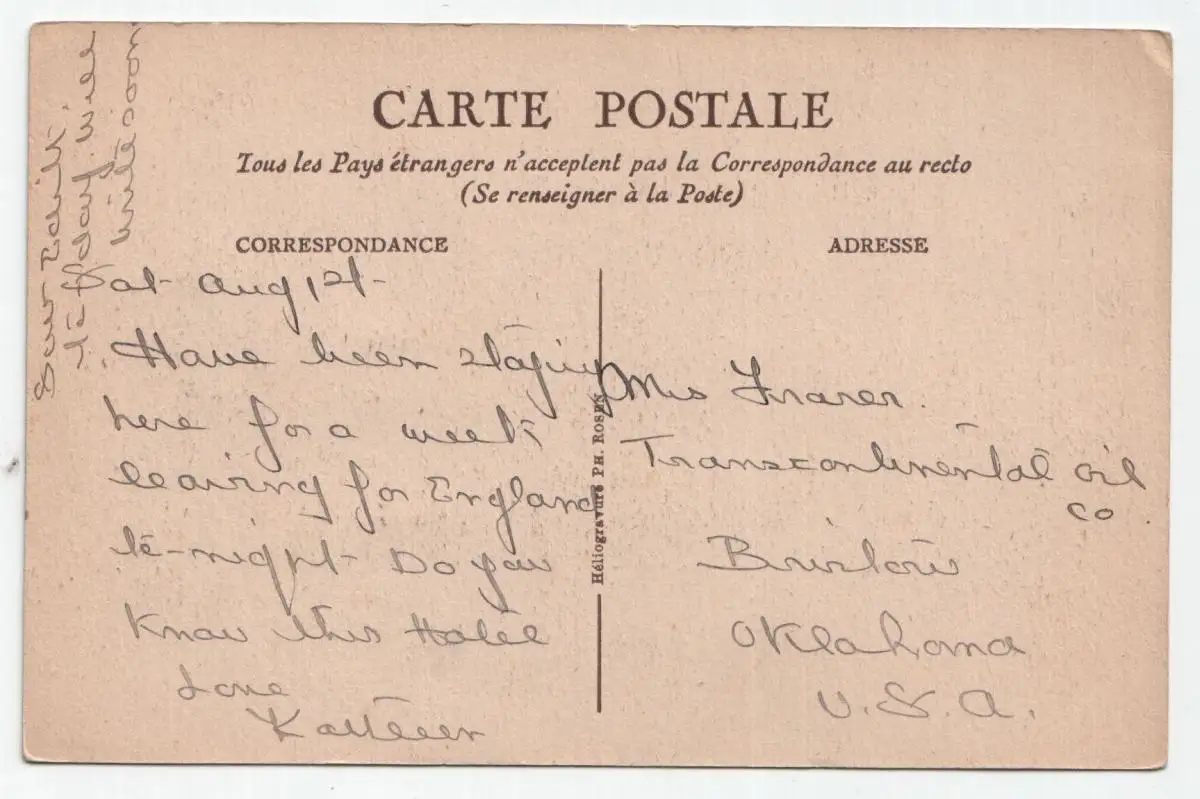 CARTE POSTALE
Tous les Pays étrangers n'acceptent pas la Correspondance au recto
(Se renseigner à la Poste)
CORRESPONDANCE
ADRESSE
Sat Aug 1st
Have been staying
here for a week
leaving for England
to-night Do you
know this Hotel
Love
Kathleen
Saw Edith
to day. Will
write soon
Héliogravure PH. ROSEN
Transcontinental Oil
Co.
Bristow
Oklahoma
U.S.A.